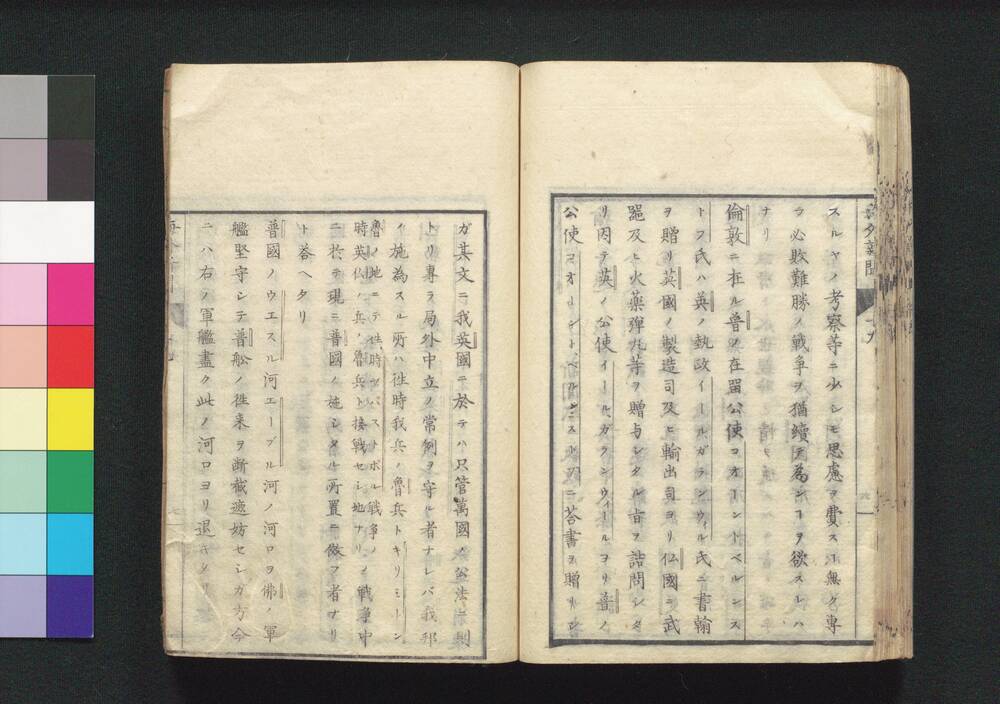 スルヤノ考察等ニ少シモ思慮ヲ費スヿ無ク專
ラ必敗難勝ノ戦争ヲ猶續テ為ンヿヲ欲スレハ
ナリ
倫敦ニ在ル普ノ在畱公使コオーントベルンス
トフ氏ハ英ノ執政イールガランウィル氏ニ書翰
ヲ贈リ英國ノ製造司及ヒ輸出司ヨリ仏國ニ武
噐及ヒ火藥彈丸等ヲ贈与シタル旨ヲ詰問シタ
リ因テ英ノ公使イールガランウィールヨリ普ノ
公使コオーントベルンストフニ荅書ヲ贈リシ
ガ其文ニ我英國ニ於テハ只管萬國ノ公法ニ則
トリ專ラ局外中立ノ常例ヲ守ル者ナレバ我邦
ノ施為スル所ハ徃時我兵ノ魯兵トキリミーン
魯ノ地ニテ徃時セバストポル戦争ノ
時英仏ノ兵魯兵ト接戦セシ地ナリノ戦争中
ニ於テ現ニ普國ノ施シタル所置ニ倣フ者ナリ
ト荅ヘタリ
普國ノウエスル河エーブル河ノ河口ヲ佛ノ軍
艦堅守シテ普舩ノ徃来ヲ断截遮妨セシガ方今
ニハ右ノ軍艦盡ク此ノ河口ヨリ退キタリ